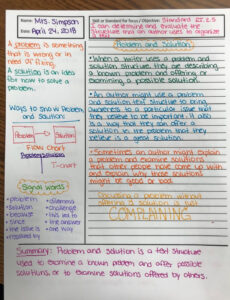 Name: Mrs. Simpson
Date: April 24, 2018
Skill or Standard for Focus / Objective: Standard RI.5.5
I can determine and evaluate the
structure that an author uses to organize
Problem and Solution
A problem is something
that is wrong or in
need of fixing.
A solution is an idea
for how to solve a
problem.
Ways to show Problem and
Solution:
Problem
Solution
Flow Chart
Problem Solution
T-chart
Signal Words
problem
solution
because
since
the issue is
resolved
dilemma
challenge
this led to
the answer
one way
When a writer uses a problem and
solution structure, they are describing
a known problem and offering or
examining a possible solution.
An author might use a problem
and solution text structure to bring
awareness to a particular issue that
they believe to be important. It also
is a way that they can offer a
solution to the problem that they
believe is a great solution.
Sometimes an author might explain
a problem and examine solutions
that other people have come up with
and explain why those solutions
might be good or bad.
Discussing a problem without
offering a solution is just
COMPLAINING
Summary: Problem and solution is a text structure
used to examine a known problem and offer possible
solutions, or to examine solutions offered by others.